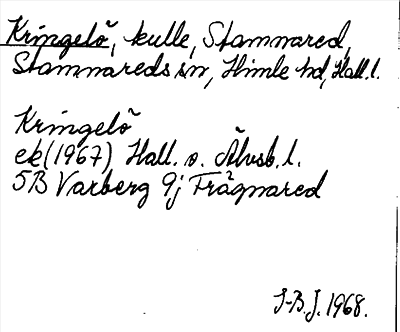 Kringelö, kulle, Stamnared,
Stamnareds sn, Himle hd, Hall. l.
Kringelö
ek (1967) Hall. o. Älvsb. l.
5B Varberg 9j Frägnared
J-B.J. 1968.